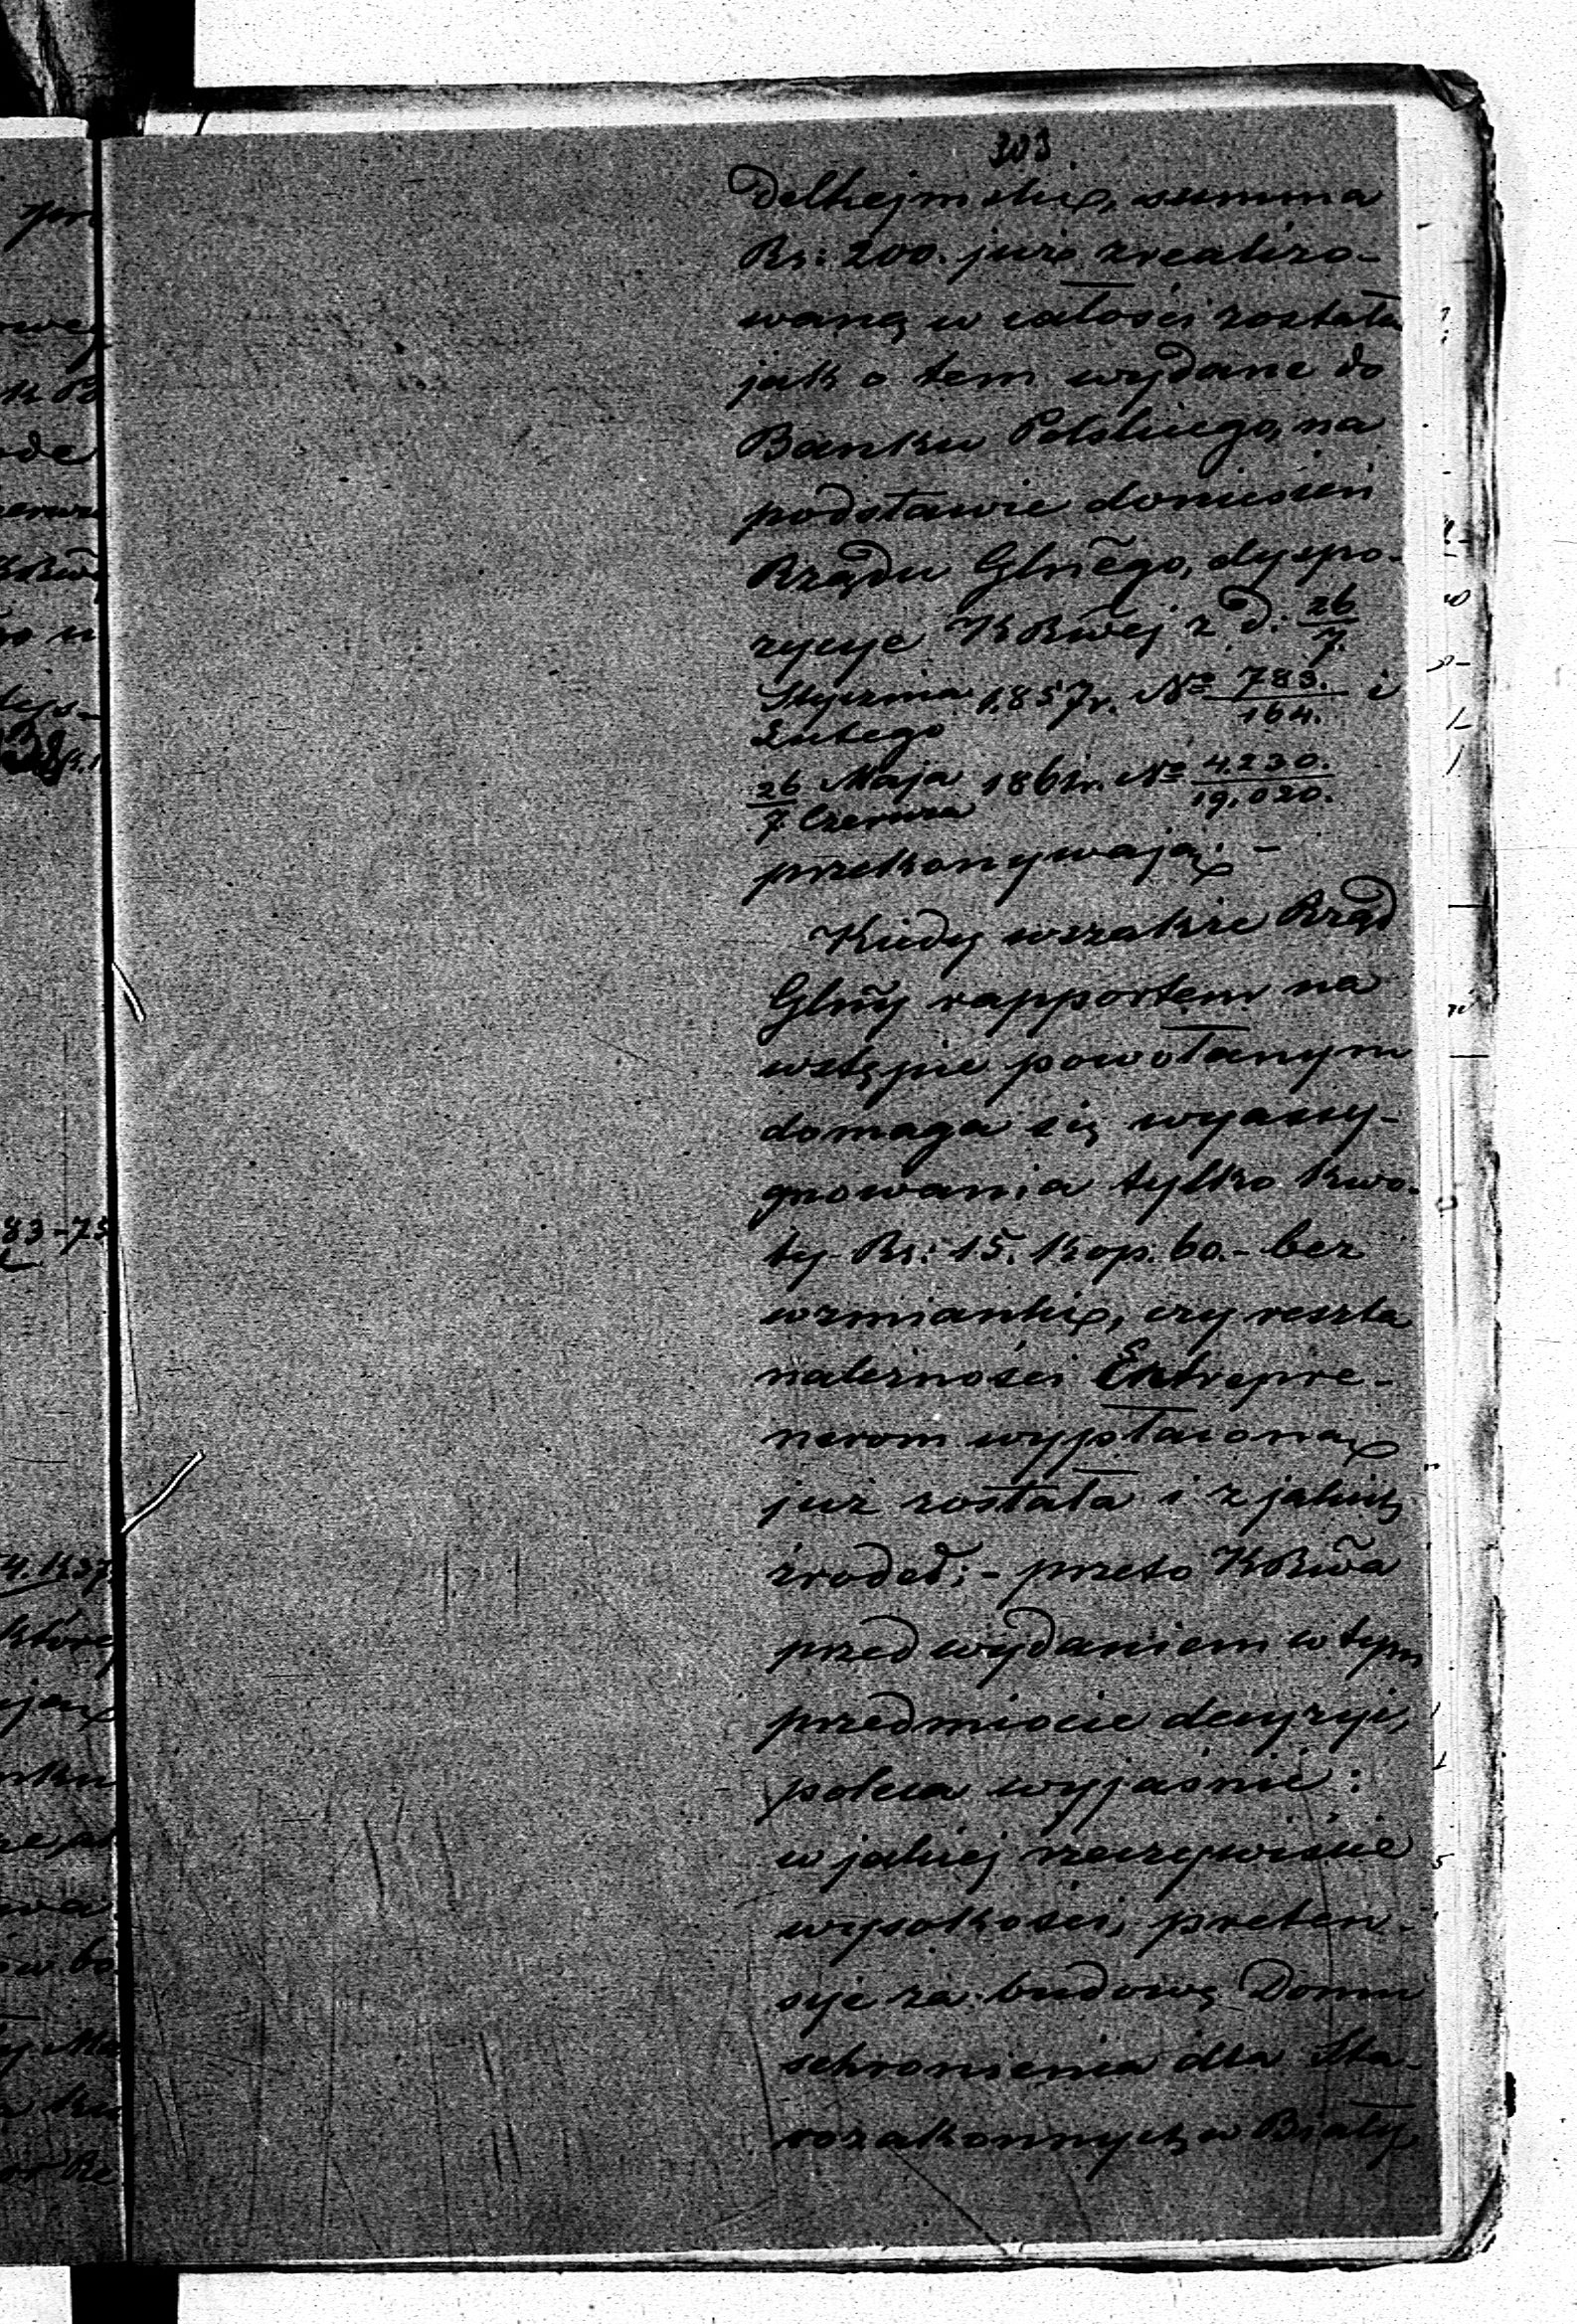 303.
delhejmskie, summa
Rs: 200. już zrealizo-
waną w całości została
jak o tem wydane do
Banku Polskiego, na
podstawie doniesień
Rządu Glnego, dyspo-
zycye KRwej z d: 26/7.
Stycznia/Lutego 1857r. No 783./164. i
26/7 Maja/Czerwca 1861r. No 4230./19,020.
przekonywają; -
Kiedy wszakże Rząd
Glny rapportem na
wstępie powołanym
domaga się wyassy-
gnowania tylko kwo-
ty Rs: 15. Kop. 60.- bez
wzmianki, czy reszta
należności Entrepre-
nerom wypłaconą
już została i z jakich
źrodeł; - przeto KRwa
przed wydaniem w tym
przedmiocie decyzyi,
poleca wyjaśnić:
w jakiej rzeczywiście
wysokości, preten-
syje za budowę Domu
schronienia dla Sta-
rozakonnych w Białej